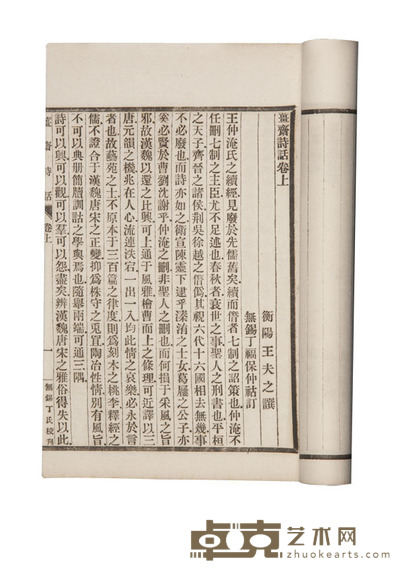 薑齋詩話卷上
衡陽王夫之譔
無錫丁福保仲祜訂
王仲淹氏之續經見廢於先儒舊矣續而僭者七制之詔策也仲淹不
任刪七制之主臣尤不足述也春秋者衰世之事聖人之刑書也平桓
之天子齊晉之諸侯荆吳徐越之僭僞其視六代十六國相去無幾事
不必廢也而詩亦如之衞宣陳靈下逮乎溱洧之士女葛屨之公子亦
奚必賢於曹劉沈謝乎仲淹之刪非聖人之刪也而何損于采風之旨
邪故漢魏以還之比興可上通于風雅檜曹而上之條理可近譯以三
唐元韻之機兆在人心流連泆宕一出一入均此情之哀樂必永於言
者也故藝苑之士不原本于三百篇之律度則爲刻木之桃李釋經之
儒不證合于漢魏唐宋之正變抑爲株守之兎罝陶冶性情別有風旨
不可以典册簡牘訓詁之學與焉也隨舉兩端可通三隅
詩可以興可以觀可以羣可以怨盡矣辨漢魏唐宋之雅俗得失以此
薑齋詩話 卷上
一
無錫丁氏校刊
卓克艺术网
zhuokearts.com